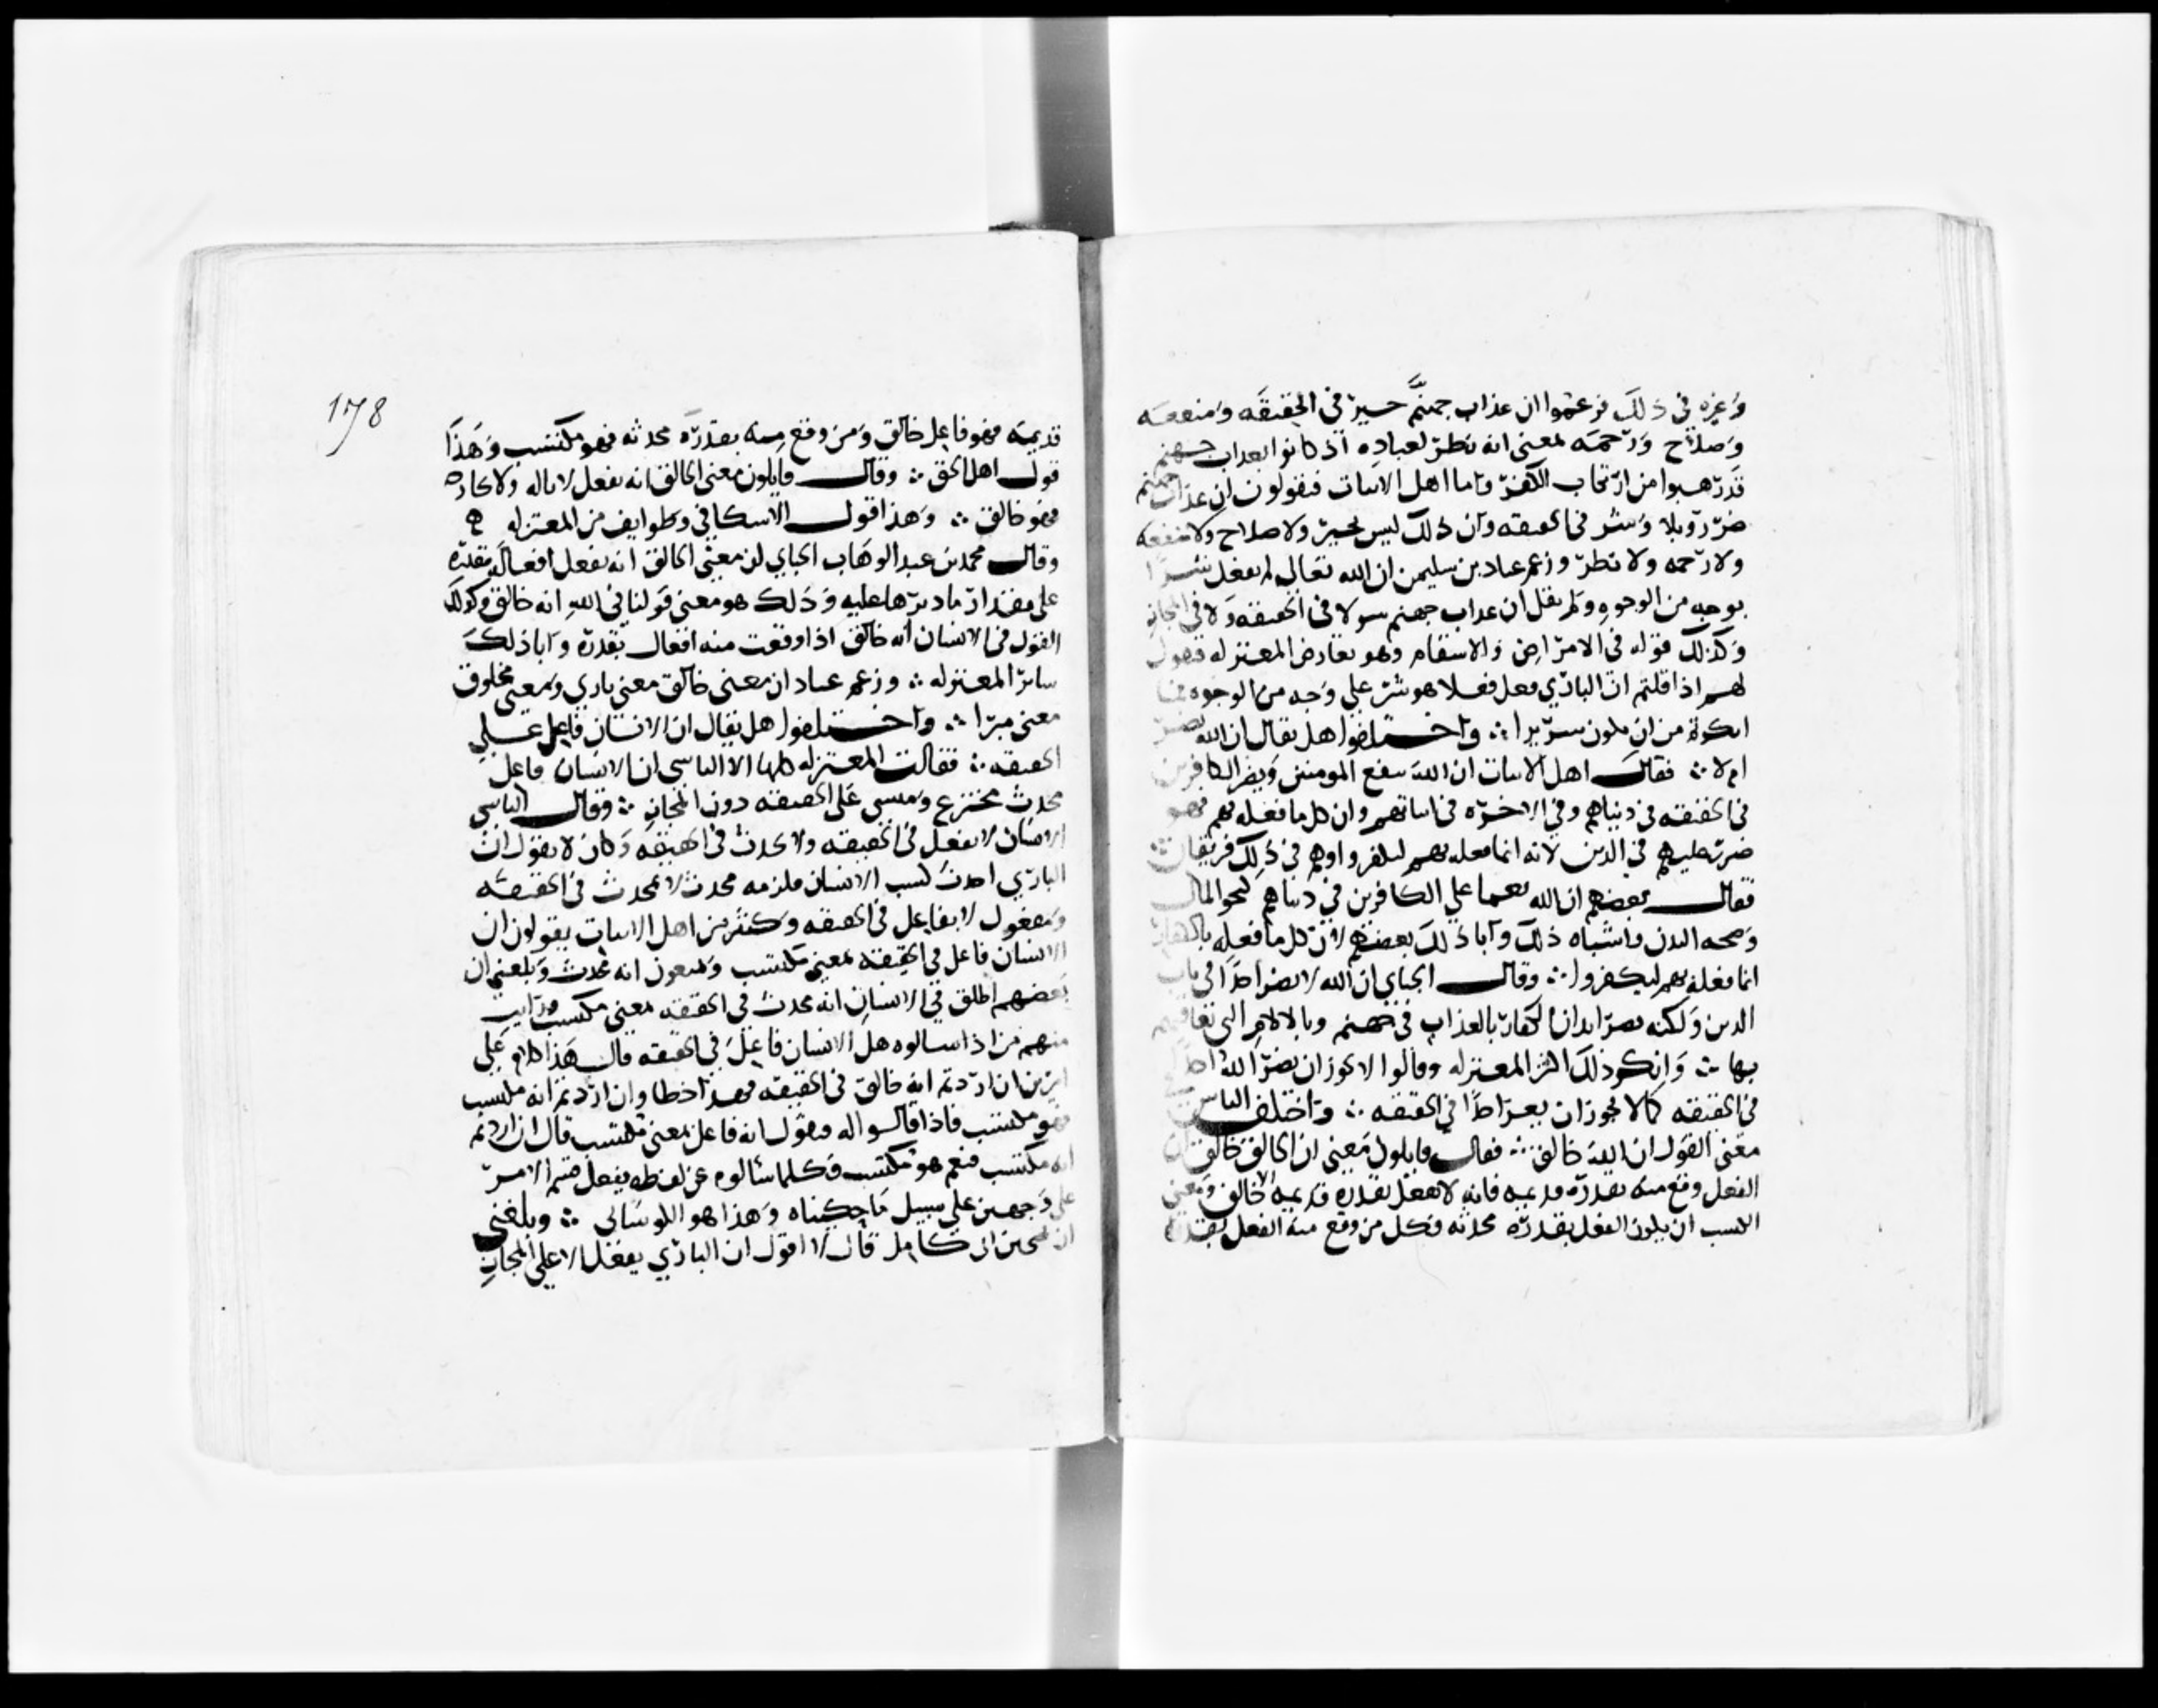 وغيره في ذلك فزعموا ان عذاب جهنم خير في الحقيقه ومنفعه
وصلاح ورحمه بمعنى انه نظر لعباده اذ كانوا بعذاب جهنم
قد رهبوا من ارتكاب الكفر واما اهل الاثبات فيقولون ان عذاب جهنم
ضرر وبلا وشر في الحقيقه وان ذلك ليس بخير ولا صلاح ولا منفعه
ولا رحمه ولا نظر وزعم عباد بن سليمن ان الله تعالى لم يفعل شرا
بوجه من الوجوه ولم يقل ان عذاب جهنم سو لا في الحقيقه ولا في المجاز
وكذلك قوله في الامراض والاسقام وهو يعارض المعتزله فيقول
لهم اذا قلتم ان الباري فعل فعلا هو شر على وجه من الوجوه فما
انكرتم من ان يكون شريرا ∴ واختلفوا هل يقال ان الله يضر
ام لا ∴ فقال اهل الاثبات ان الله ينفع المومنين ويضر الكافرين
في الحقيقه في دنياهم وفي الاخره في اديانهم وان كل ما فعله بهم فهو
ضرر عليهم في الدين لانه انما فعله بهم ليكفروا وهم في ذلك فريقان ∴
فقال بعضهم ان لله نعما على الكافرين في دنياهم كنحو المال
وصحه البدن واشباه ذلك وابا ذلك بعضهم لان كل ما فعله بالكفار
انما فعله بهم ليكفروا ∴ وقال الجباي ان الله لا يضر احدا في باب
الدين ولكنه يضر ابدان الكفار بالعذاب في جهنم وبالالام التي يعاقبهم
بها ∴ وانكر ذلك اكثر المعتزله وقالوا لا يجوز ان يضر الله احدا
في الحقيقه كما لا يجوز ان يغر احدا في الحقيقه ∴ واختلف الناس في
معنى القول ان الله خالق ∴ فقال قايلون معنى ان الخالق خالق ان
الفعل وقع منه بقدره قديمه فانه لا يفعل بقدره قديمه الا خالق ومعنى
الكسب ان يكون الفعل بقدره محدثه فكل من وقع منه الفعل بقدره
178
قديمه فهو فاعل خالق ومن وقع منه بقدره محدثه فهو مكتسب وهذا
قول اهل الحق ∴ وقال قايلون معنى الخالق انه يفعل لا باله ولا بجارحه
فهو خالق ∴ وهذا قول الاسكافي وطوايف من المعتزله ه
وقال محمد بن عبد الوهاب الجباي ان معنى الخالق انه يفعل افعاله مقدره
على مقدار ما دبرها عليه وذلك هو معنى قولنا في الله انه خالق وكذلك
القول في الانسان انه خالق اذا وقعت منه افعال بقدره وابا ذلك
ساير المعتزله ∴ وزعم عباد ان معنى خالق معنى باري ومعنى مخلوق
معنى مبرا ∴ واختلفوا هل يقال ان الانسان فاعل على
الحقيقه ∴ فقالت المعتزله كلها الا الناشي ان الانسان فاعل
محدث مخترع ومنشي على الحقيقه دون المجاز ∴ وقال الناشي
الانسان لا يفعل في الحقيقه ولا يحدث في الحقيقه وكان لا يقول ان
الباري احدث كسب الانسان فلزمه محدث لا لمحدث في الحقيقه
ومفعول لا لفاعل في الحقيقه وكثير من اهل الاثبات يقولون ان
الانسان فاعل في الحقيقه بمعنى مكتسب ويمنعون انه محدث وبلغني ان
بعضهم اطلق في الانسان انه محدث في الحقيقه بمعنى مكتسب ورايت
منهم من اذا سالوه هل الانسان فاعل في الحقيقه قال هذا كلام على
امرين ان اردتم انه خالق في الحقيقه فهذا خطا وان اردتم انه مكتسب
فهو مكتسب فاذا قالوا له فيقول انه فاعل بمعنى مكتسب قال ان اردتم
انه مكتسب فنعم هو مكتسب فكلما سالوه عن لفظه يفعل قسم الامر
على وجهين على سبيل ما حكيناه وهذا هو الكوشاني ∴ وبلغني
ان يحيى بن ابي كامل قال لا اقول ان الباري يفعل الا على المجاز